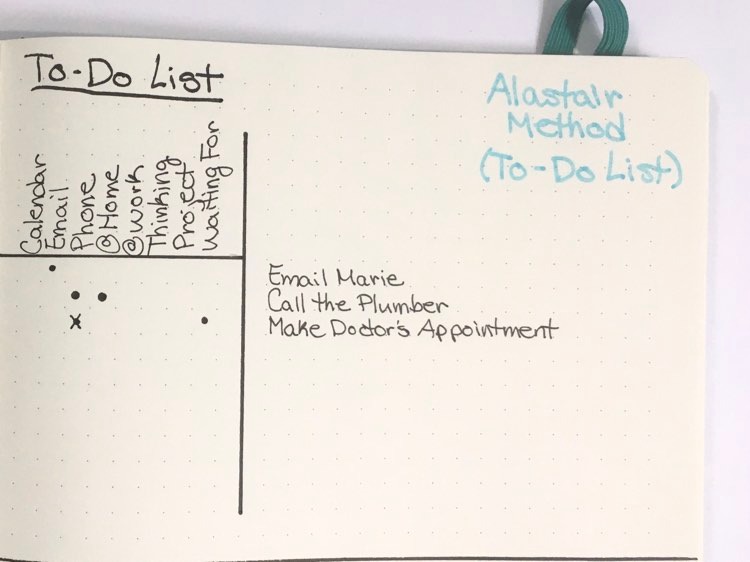 To-Do List
Alastair
Method
(To-Do List)
Calendar
Email
Phone
@Home
@Work
Thinking
Project
Waiting For
Email Marie
Call the Plumber
x Make Doctor's Appointment